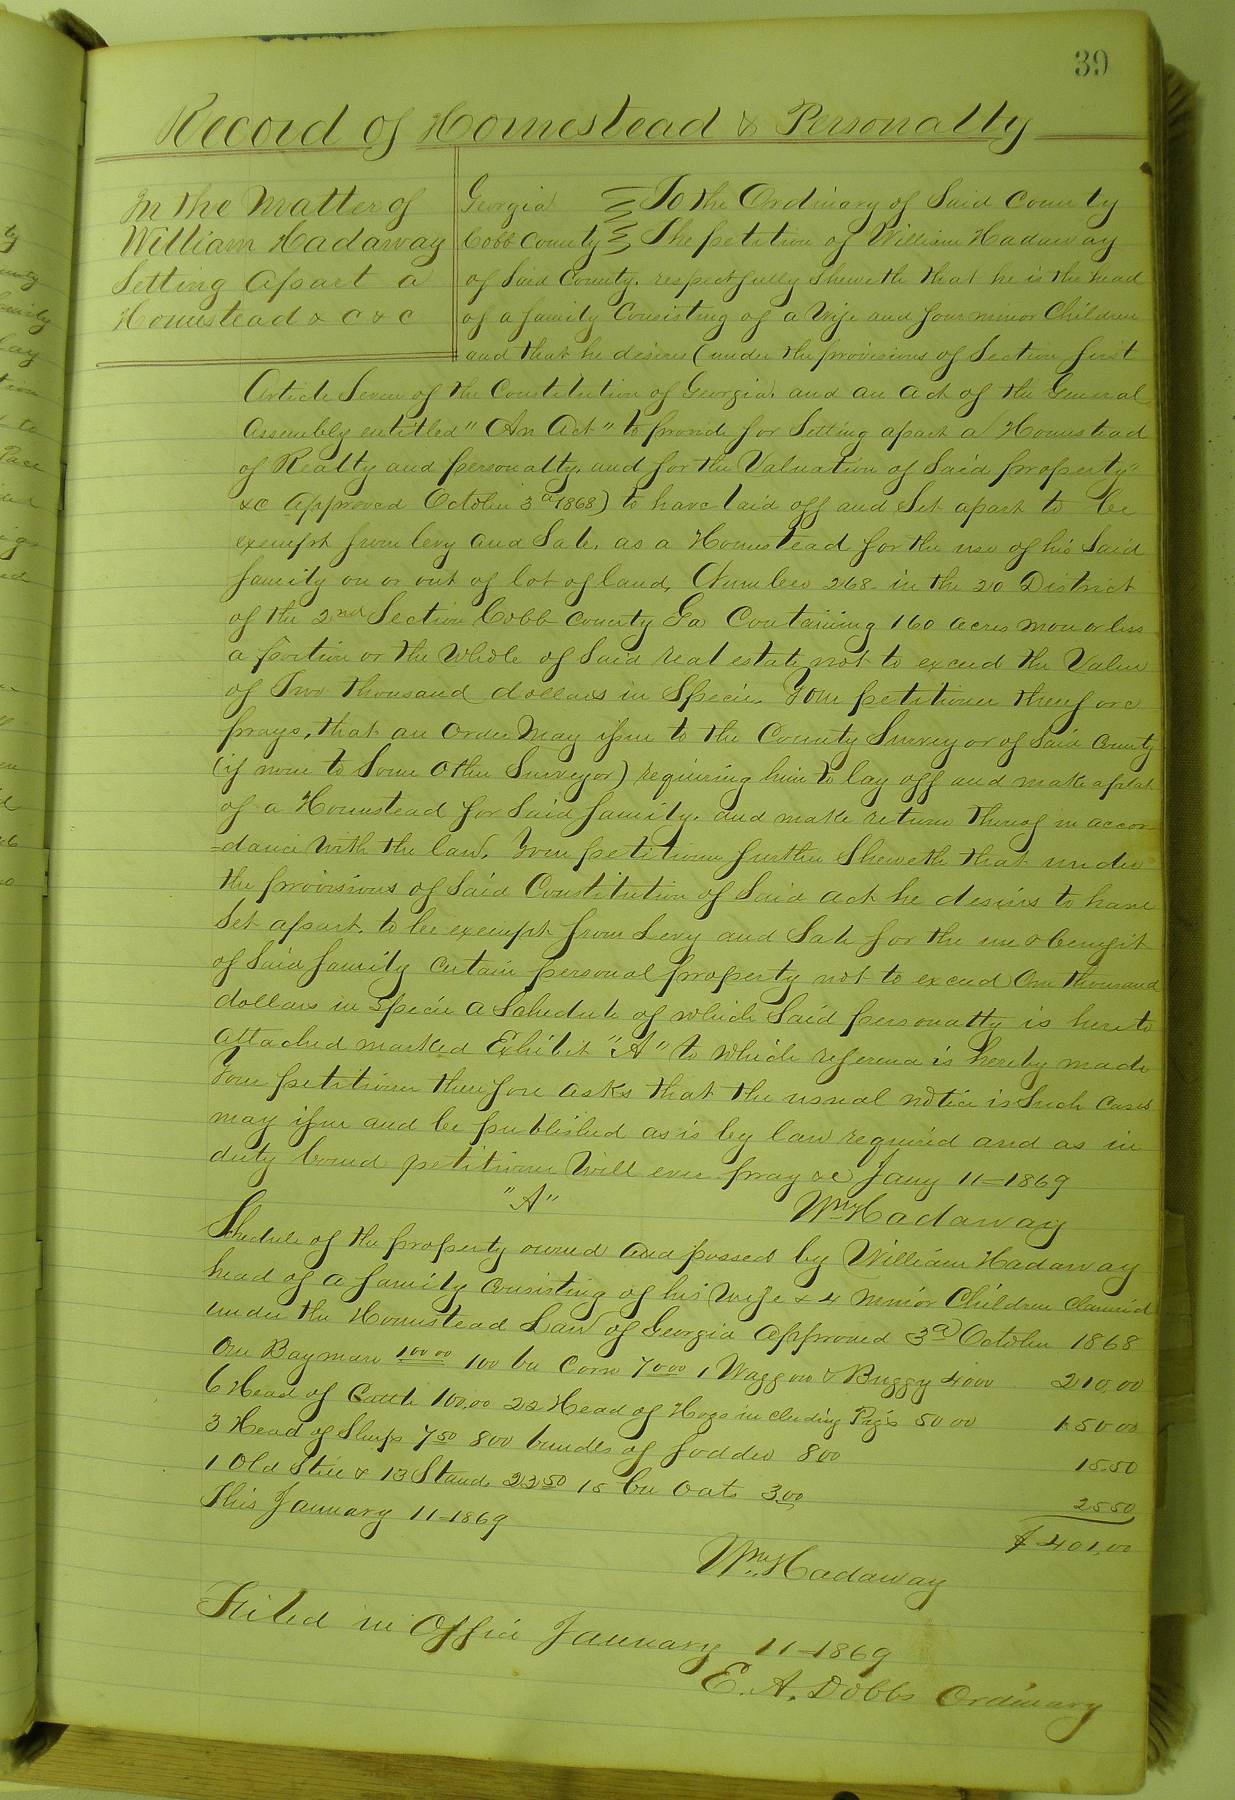 39
Record of Homestead & Personalty
In the Matter of
William Hadaway
Setting Apart a
Homestead & c & c
Georgia To the Ordinary of Said County
Cobb County The petition of William Hadaway
of Said County. respectfully Sheweth that he is the head
of a family Consisting of a Wife and four minor Children
and that he desires (under the provisions of Section first
Article Seven of the Constitution of Georgia, and an act of the General
Assembly entitled "An Act" to provide for Setting apart a Homestead
of Realty and personalty, and for the Valuation of Said property"
&c Approved October 3d 1868) to have laid off and Set apart to be
exempt from levy and Sale, as a Homestead for the use of his Said
family on or out of lot of land, Number 268 in the 20 District
of the 2nd Section Cobb County Ga Containing 160 acres more or less
a portion or the Whole of Said real estate not to exceed the Value
of Two thousand dollars in Specie. Your petitioner therefore
prays, that an order May issue to the County Surveyor of Said County
(if none to Some Other Surveyor) requiring him to lay off and make a plat
of a Homestead for Said family. and make return thereof in accor
=dance With the law. Your petitioner further Sheweth that under
the provisions of Said Constitution of Said act he desires to have
Set apart, to be exempt from Levy and Sale for the use & benefit
of Said family certain personal property not to exceed One thousand
dollars in Specie a Schedule of which Said personalty is hereto
attached marked Exhibit "A" to which reference is hereby made
Your petitioner therefore asks that the usual notice is Such cases
may issue and be published as is by law required and as in
duty bound petitioner Will ever pray &c Jany 11-1869
"A" Wm Hadaway
Shedule of the property owned and possed by William Hadaway
head of a family Consisting of his Wife & 4 Minor Children claimed
under the Homestead Law of Georgia Approved 3d October 1868
One Bay mare 100.00 100 bu Corn 70.00 1 Waggon & Buggy 40.00 210.00
6 Head of Cattle 100.00 22 Head of Hogs including Pigs 50.00 150.00
3 Head of Sheep 7.50 800 bundles of fodder 8.00 15.50
1 Old Still & 13 Stands 22.50 15 bu Oats 3.00 25.50
This January 11-1869 $401.00
Wm Hadaway
Filed in Office January 11-1869
E. A. Dobbs Ordinary